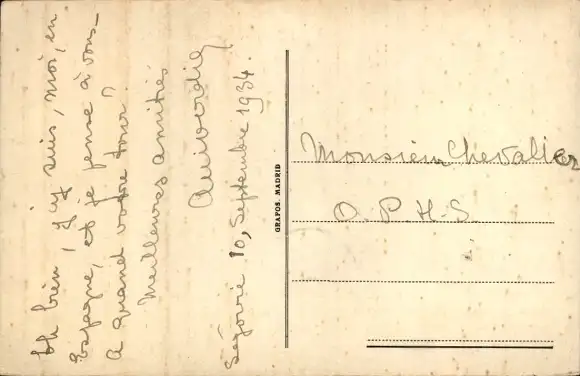 Eh bien ! j'y suis, moi, en
Espagne, et je pense à vous_
A quand votre tour ?
Meilleures amitiés
Ségovie 10, Septembre 1934.
GRAFOS. MADRID
Monsieur Chevalier
O. P. H. S.